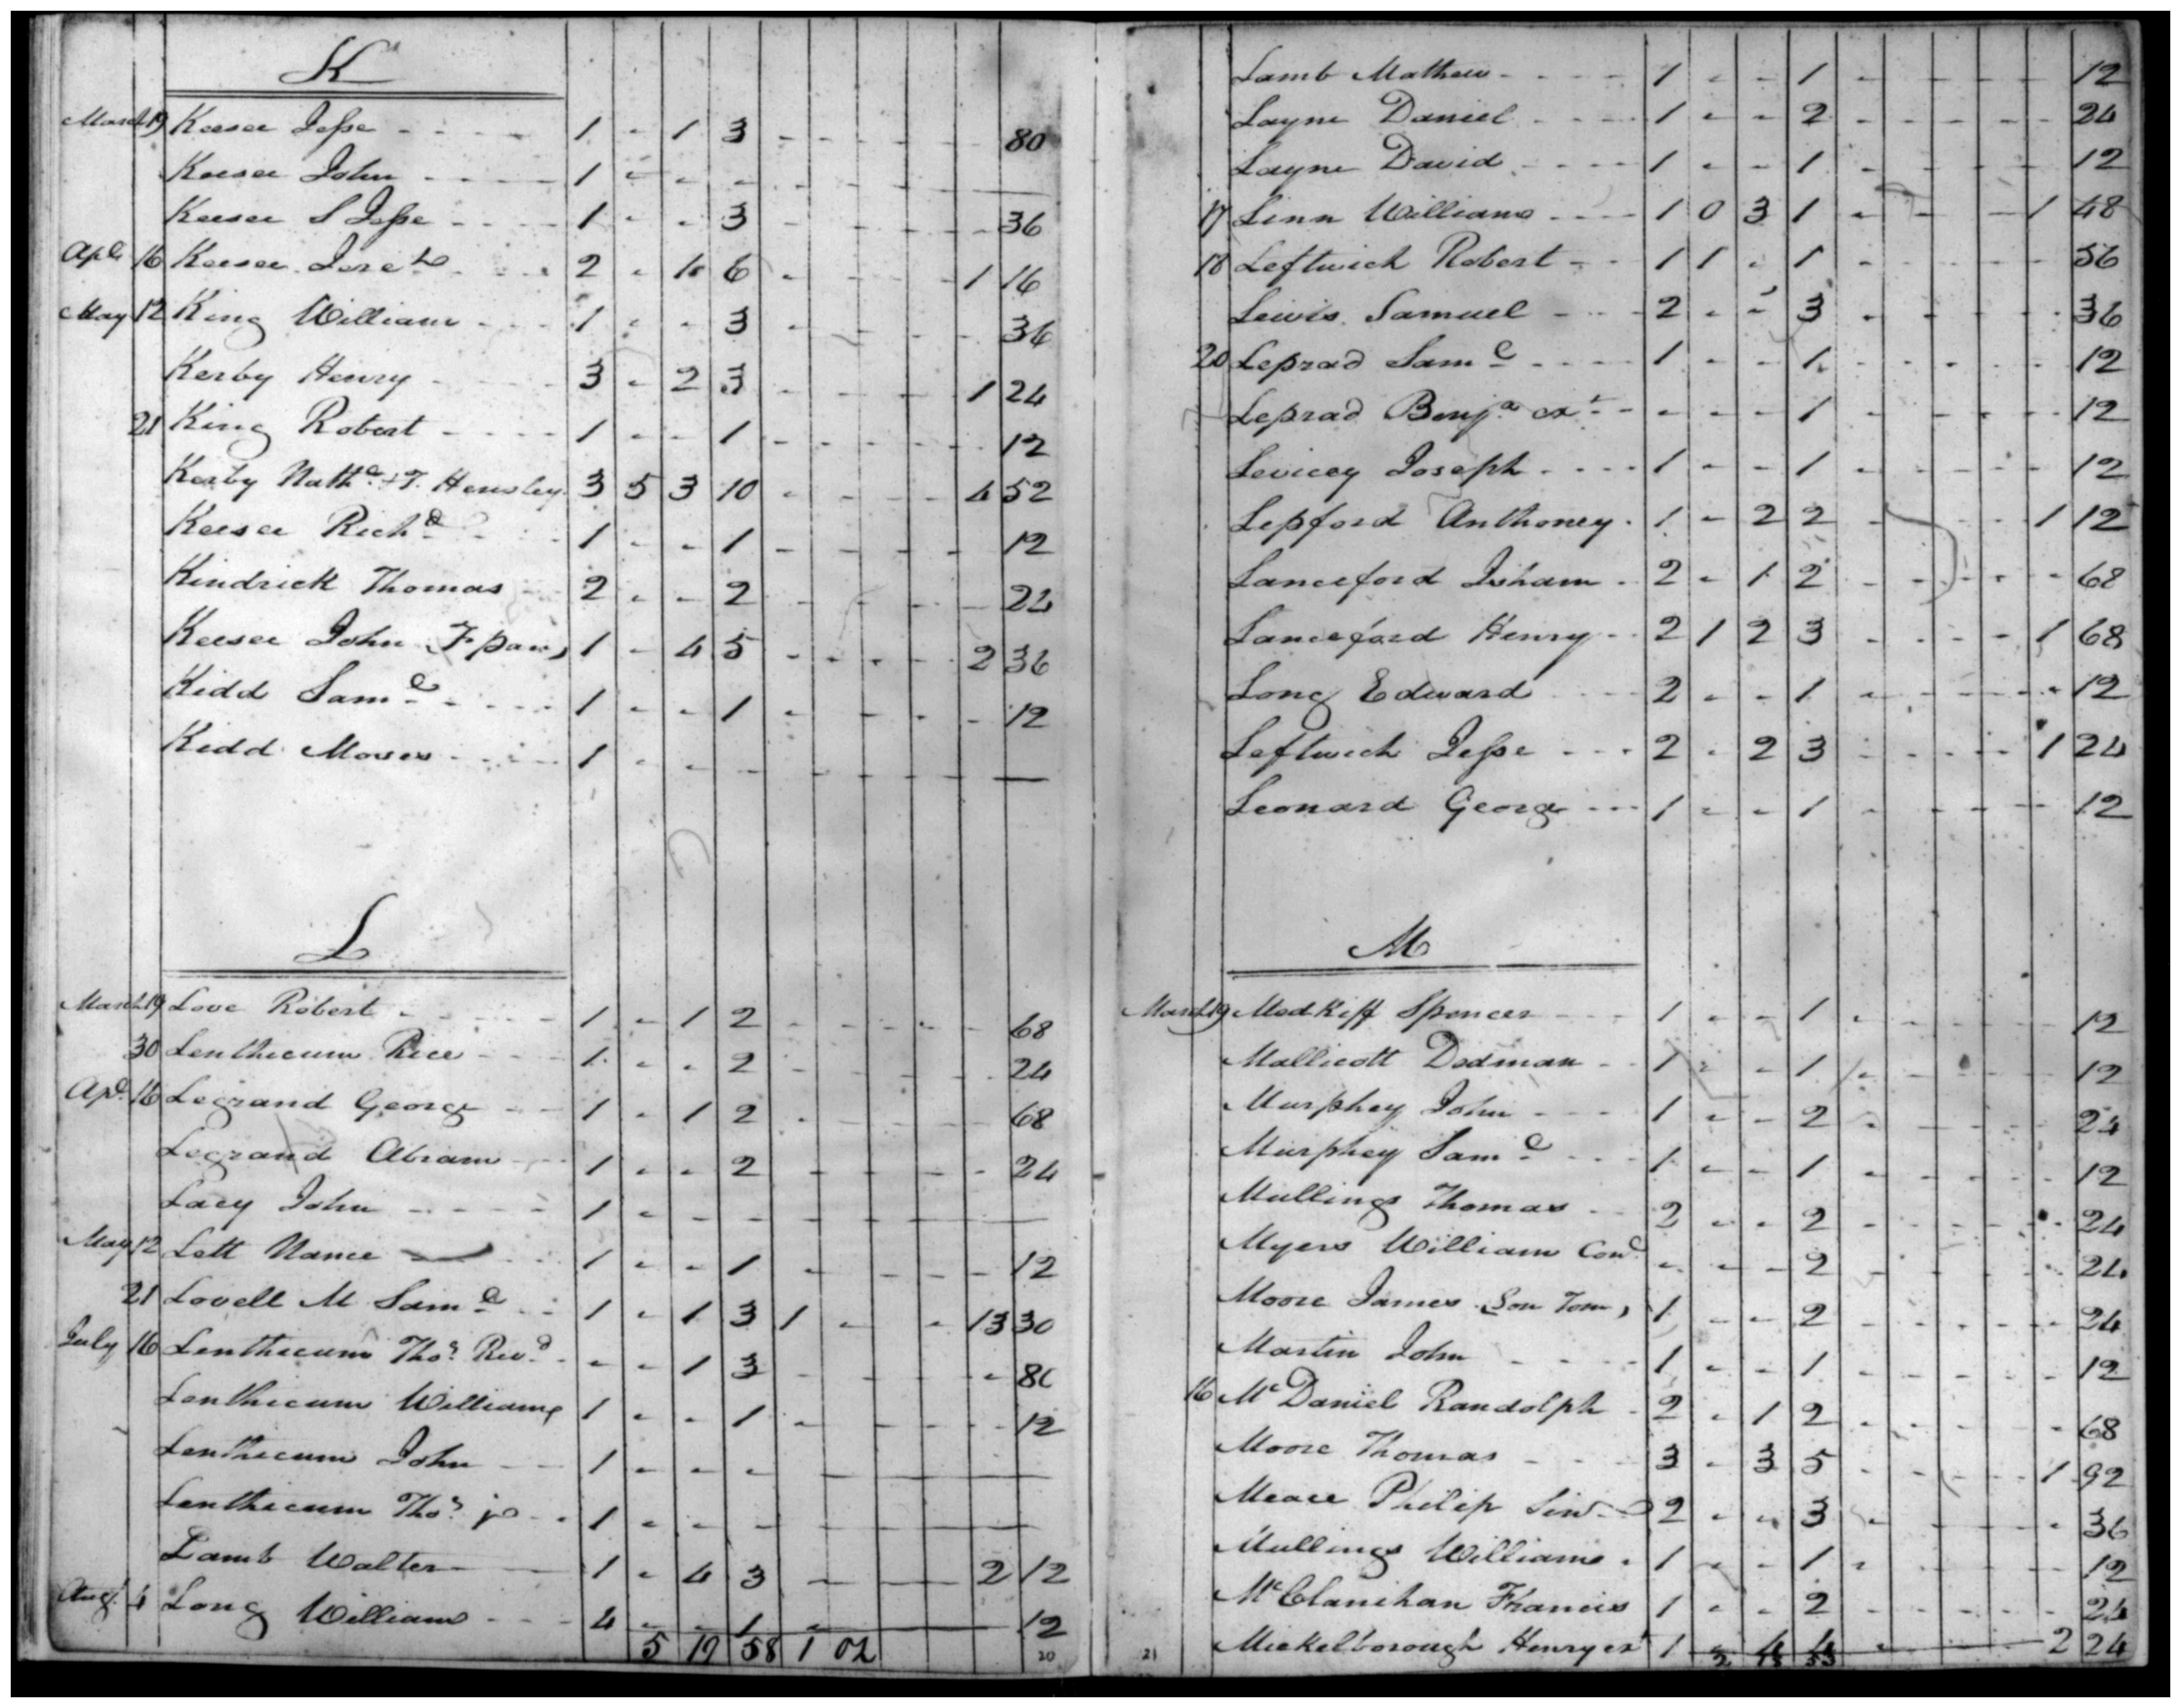 K
March 19 Keesee Jesse - - - - 1 - 1 3 - - - - - 80
Keesee John - - - - 1 - - - - - - - -
Keesee S Jesse - - - 1 - - 3 - - - - - 36
Apl 16 Keesee Jere h - - - 2 - 1 6 - - - - 1 16
May 12 King William - - - 1 - - 3 - - - - - 36
Kerby Henry - - - - 3 - 2 3 - - - - 1 24
21 King Robert - - - - 1 - - 1 - - - - - 12
Kerby Nath l + T. Hensley 3 5 3 10 - - - - 4 52
Keesee Rich d - - - 1 - - 1 - - - - - 12
Kindrick Thomas - - 2 - - 2 - - - - - 24
Keesee John F pan, 1 - 4 5 - - - - 2 36
Kidd Sam l - - - - 1 - - 1 - - - - - 12
Kidd Moses - - - - 1 - - - - - - - -
L
March 19 Love Robert - - - - 1 - 1 2 - - - - - 68
30 Lenthicum Rice - - - 1 - - 2 - - - - - 24
Apl 16 Legrand George - - 1 - 1 2 - - - - - 68
Legrand Abram - - 1 - - 2 - - - - - 24
Lacy John - - - - 1 - - - - - - - -
May 12 Lett Nance - - - 1 - - 1 - - - - - 12
21 Lovell M Sam l - - 1 - 1 3 1 - - - 13 30
July 16 Lenthicum Tho s Rev d - - - 1 3 - - - - - 80
Lenthicum William 1 - - 1 - - - - - 12
Lenthicum John - - 1 - - - - - - - -
Lenthicum Tho s jr - - 1 - - - - - - - -
Lamb Walter 1 - 4 3 - - - - 2 12
Aug t 4 Long William - - - 4 - - 1 - - - - - 12
5 19 58 1 02
20
Lamb Mathew - - - - 1 - - 1 - - - - - 12
Layne Daniel - - - - 1 - - 2 - - - - - 24
Layne David - - - - 1 - - 1 - - - - - 12
17 Linn William - - - 1 0 3 1 - - - - 1 48
18 Leftwich Robert - - 1 1 - 1 - - - - - 56
Lewis Samuel - - - 2 - - 3 - - - - - 36
20 Leprad Sam l - - - - 1 - - 1 - - - - - 12
Leprad Benj a ex t - - - - 1 - - - - - 12
Levicey Joseph - - - 1 - - 1 - - - - - 12
Lepford Anthoney - 1 - 2 2 - - - - 1 12
Lanceford Isham - 2 - 1 2 - - - - - 68
Lanceford Henry - - 2 1 2 3 - - - - 1 68
Long Edward - - - 2 - - 1 - - - - - 12
Leftwich Jesse - - - 2 - 2 3 - - - - 1 24
Leonard George - - - 1 - - 1 - - - - - 12
M
March 19 Medkiff Spencer - - - 1 - - 1 - - - - - 12
Mallicott Dedman - - 1 - - 1 - - - - - 12
Murphey John - - - 1 - - 2 - - - - - 24
Murphey Sam l - - - 1 - - 1 - - - - - 12
Mullings Thomas - - 2 - - 2 - - - - - 24
Myers William Con l - - - 2 - - - - - 24
Moore James Son Tom, 1 - - 2 - - - - - 24
Martin John - - - - 1 - - 1 - - - - - 12
16 Mc Daniel Randolph - 2 - 1 2 - - - - - 68
Moore Thomas - - - 3 - 3 5 - - - - 1 92
Meace Philip - 2 - - 3 - - - - - 36
Mullings William - 1 - - 1 - - - - - 12
Mc Clanihan Francis 1 - - 2 - - - - - 24
Mickelborough Henry ex t 1 - 4 4 - - - - 2 24
21